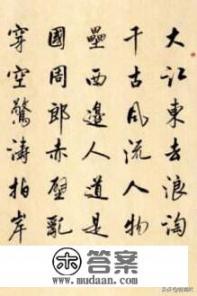 大江東去浪淘
千古風流人物
壘西邊人道是
國周郎赤壁亂
穿空驚濤拍岸
答案